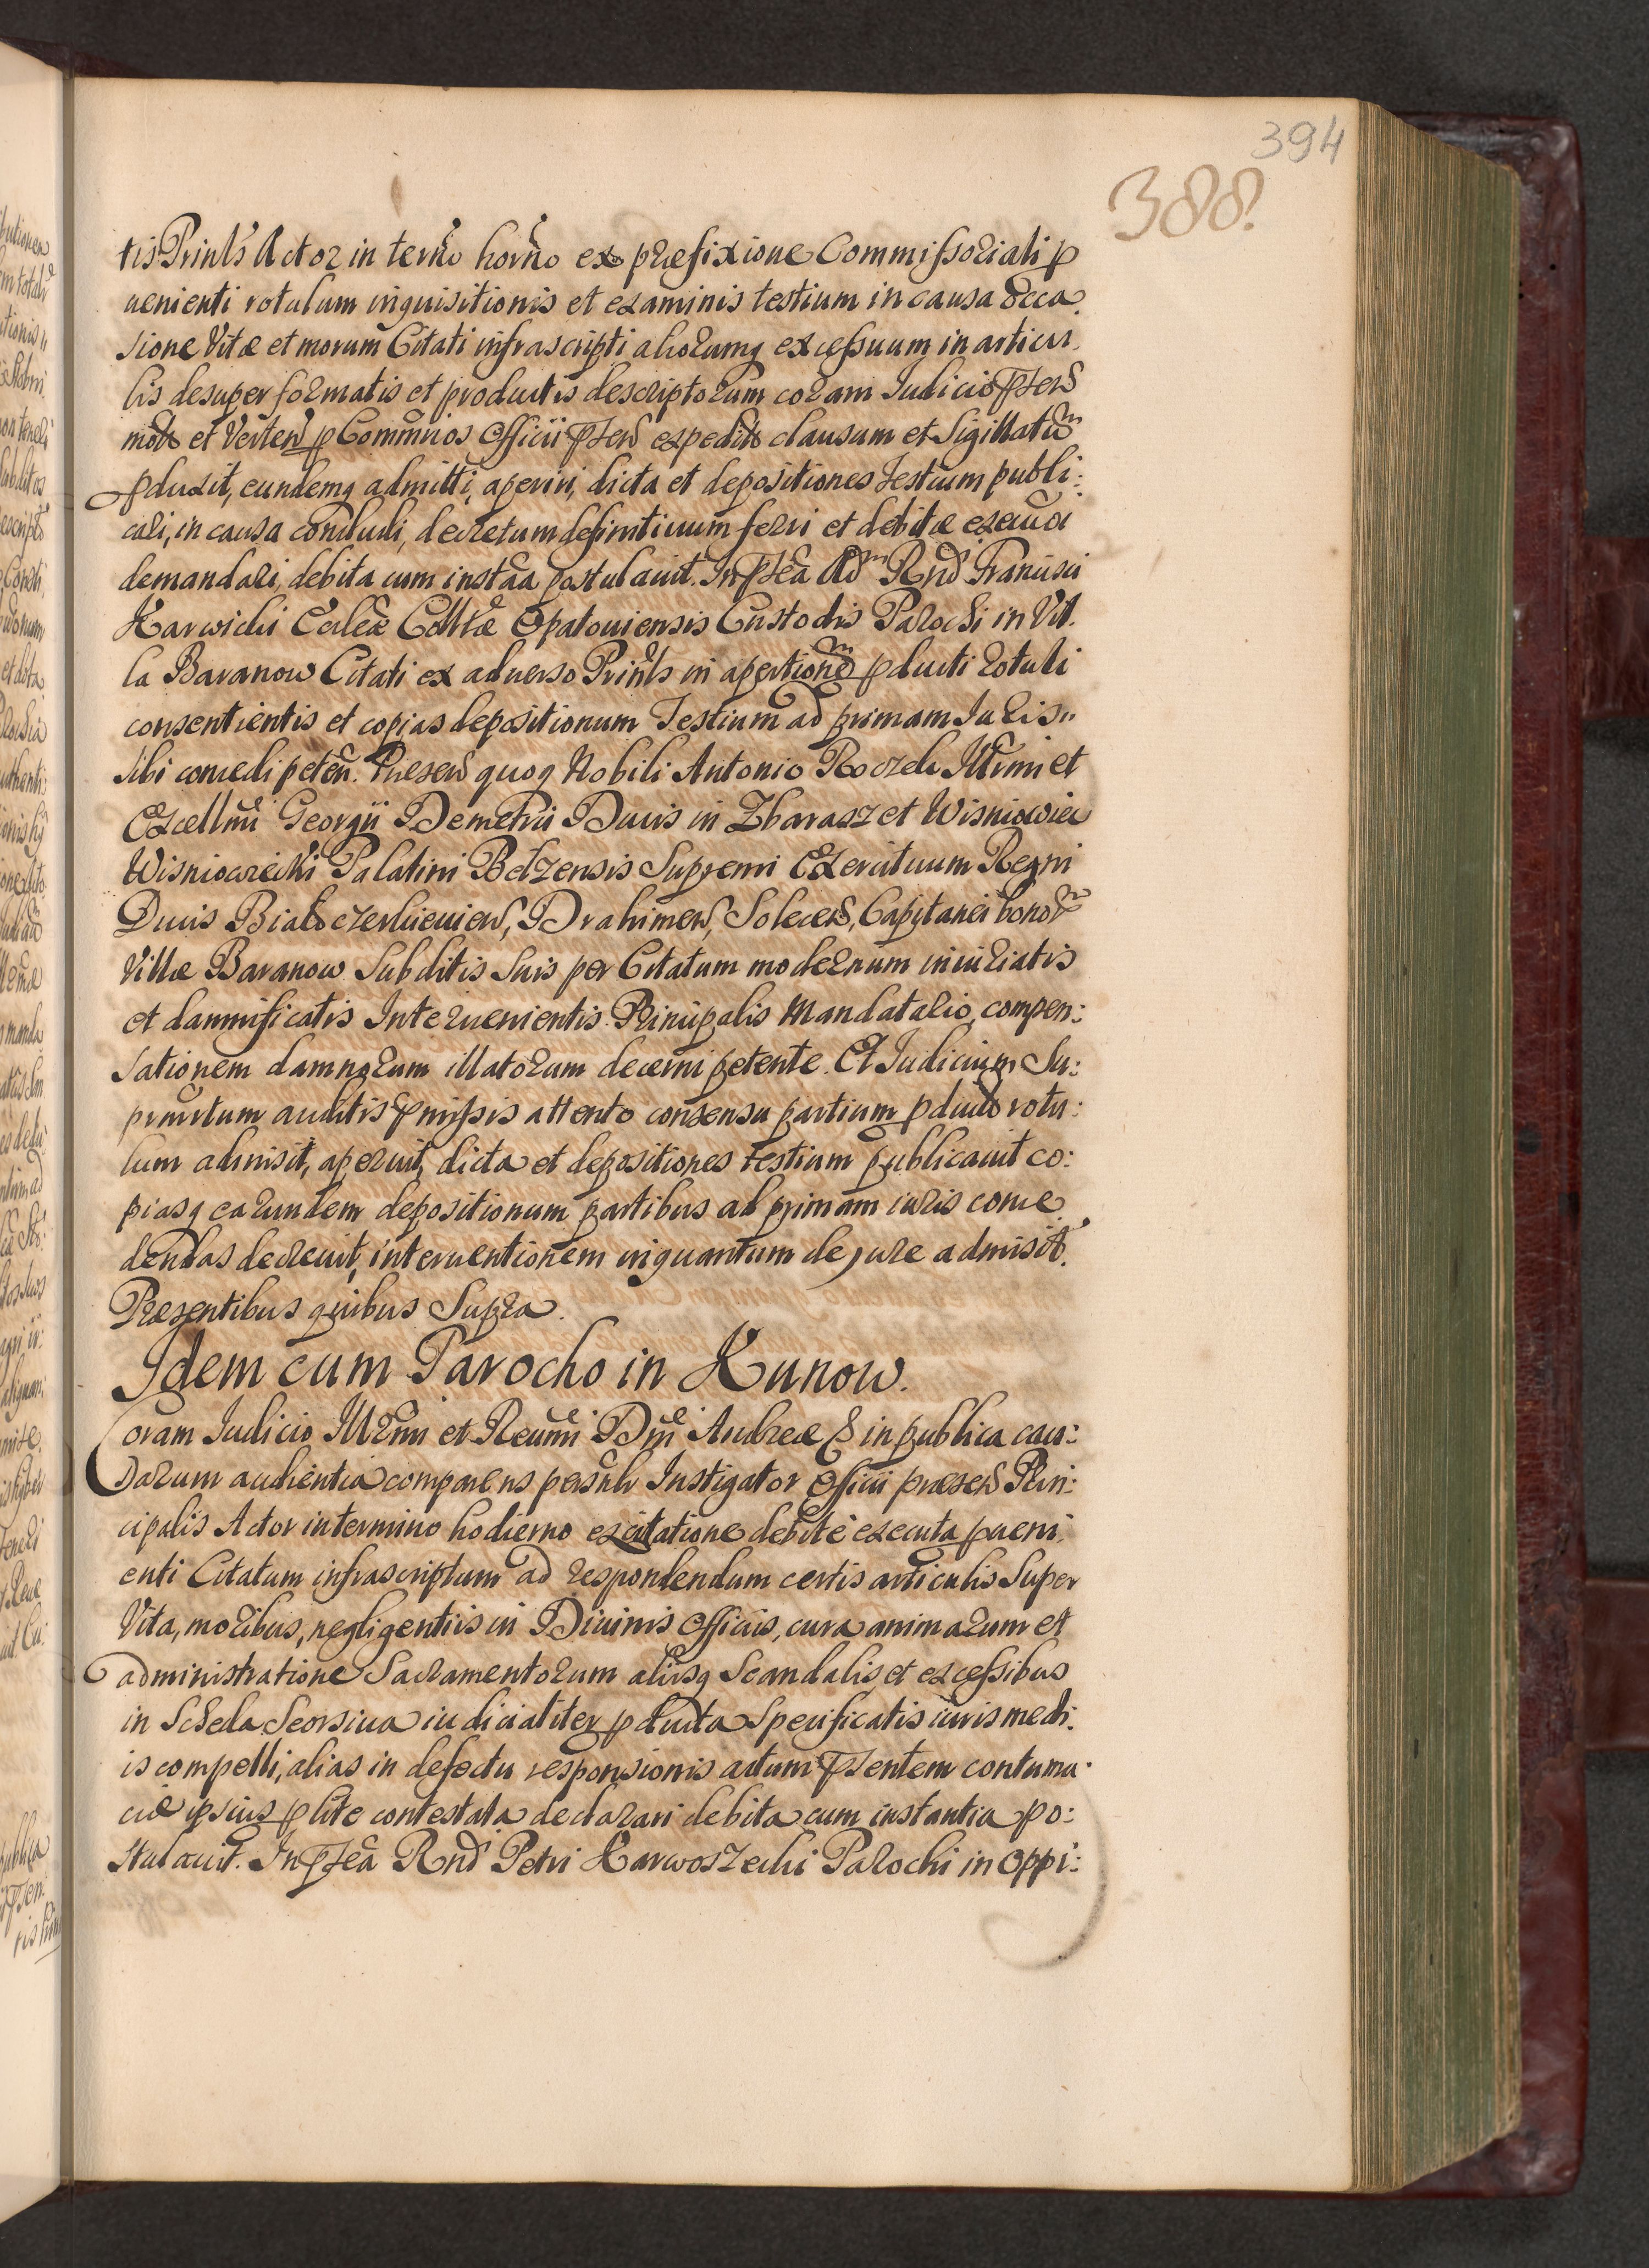 394
388.
tis Prinls Actor in terno horno ex præfixione Commissoriali p
uenienti rotulum inquisitionis et examinis testium in causa occa
sione Vitæ et morum Citati infrascripti aliorumq excessuum in articu
lis desuper formatis et productis descriptorum coram Judicio pntis
et Verten p Commrios Officii pnten expedit clausum et Sigillatum
pduxit, eundemq admitti, aperiri, dicta et depositiones testium publi:
cari, in causa concludi, decretum definitiuum ferri et debitæ
demandari, debita cum instãa postulauit. In pñtia Adm Rnd Francisci
Karwicki Ecleæ Colltæ Opatouiensis Custodis Parochi in Vil
la Baranow Citati ex aduerso Prinls in apertionem pducti rotuli
consentientis et copias depositionum Testium ad primam Juris
sibi concedi peteñ. Præsen quoq Nobili Antonio Roczek Illrmi et
Excellmi Georgii Demetrii Ducis in Zbarasz et Wisniowiec
Wisniowiecki Palatini Belzensis Supremi Exercituum Regni
Ducis Bialoczerkieuien, Drahimen, Solecen, Capitanei bonor
Villæ Baranow Subditis Suis per Citatum modernum iniuriatis
et damnificatis Interuenientis Principalis Mandatario, compen:
sationem damnorum illatorum decerni petente. Et Judicium Su:
prascriptum auditis pmissis attento consensu partium pducto rotu:
lum admisit, aperuit, dicta et depositiones testium publicauit co:
piasq earundem depositionum partibus ad primam iuris conce
dendas decreuit, interuentionem inquantum de jure admisit.
Præsentibus quibus Supra.
Idem cum Parocho in Kunow.
Coram Judicio Illrmi et Reumi Dni Andreæ in publica cau:
sarum audientia comparens persnlr Instigator Officii præsen Prin:
cipalis Actor in termino hodierno ex citatione debite executa pueni
enti Citatum infrascriptum ad respondendum certis articulis Super
Vita, moribus, negligentiis in Diuinis Officiis, cura animarum et
administratione Sacramentorum aliisq Scandalis et excessibus
in Scheda Seorsiua iudicialiter pducta Specificatis iuris medi
is compelli, alias in defectu responsionis actum pntentem contuma
ciæ ipsius p lite contestata declarari debita cum instantia po:
stulauit. In pñtia Rnd Petri Karwoszecki Parochi in Oppi: